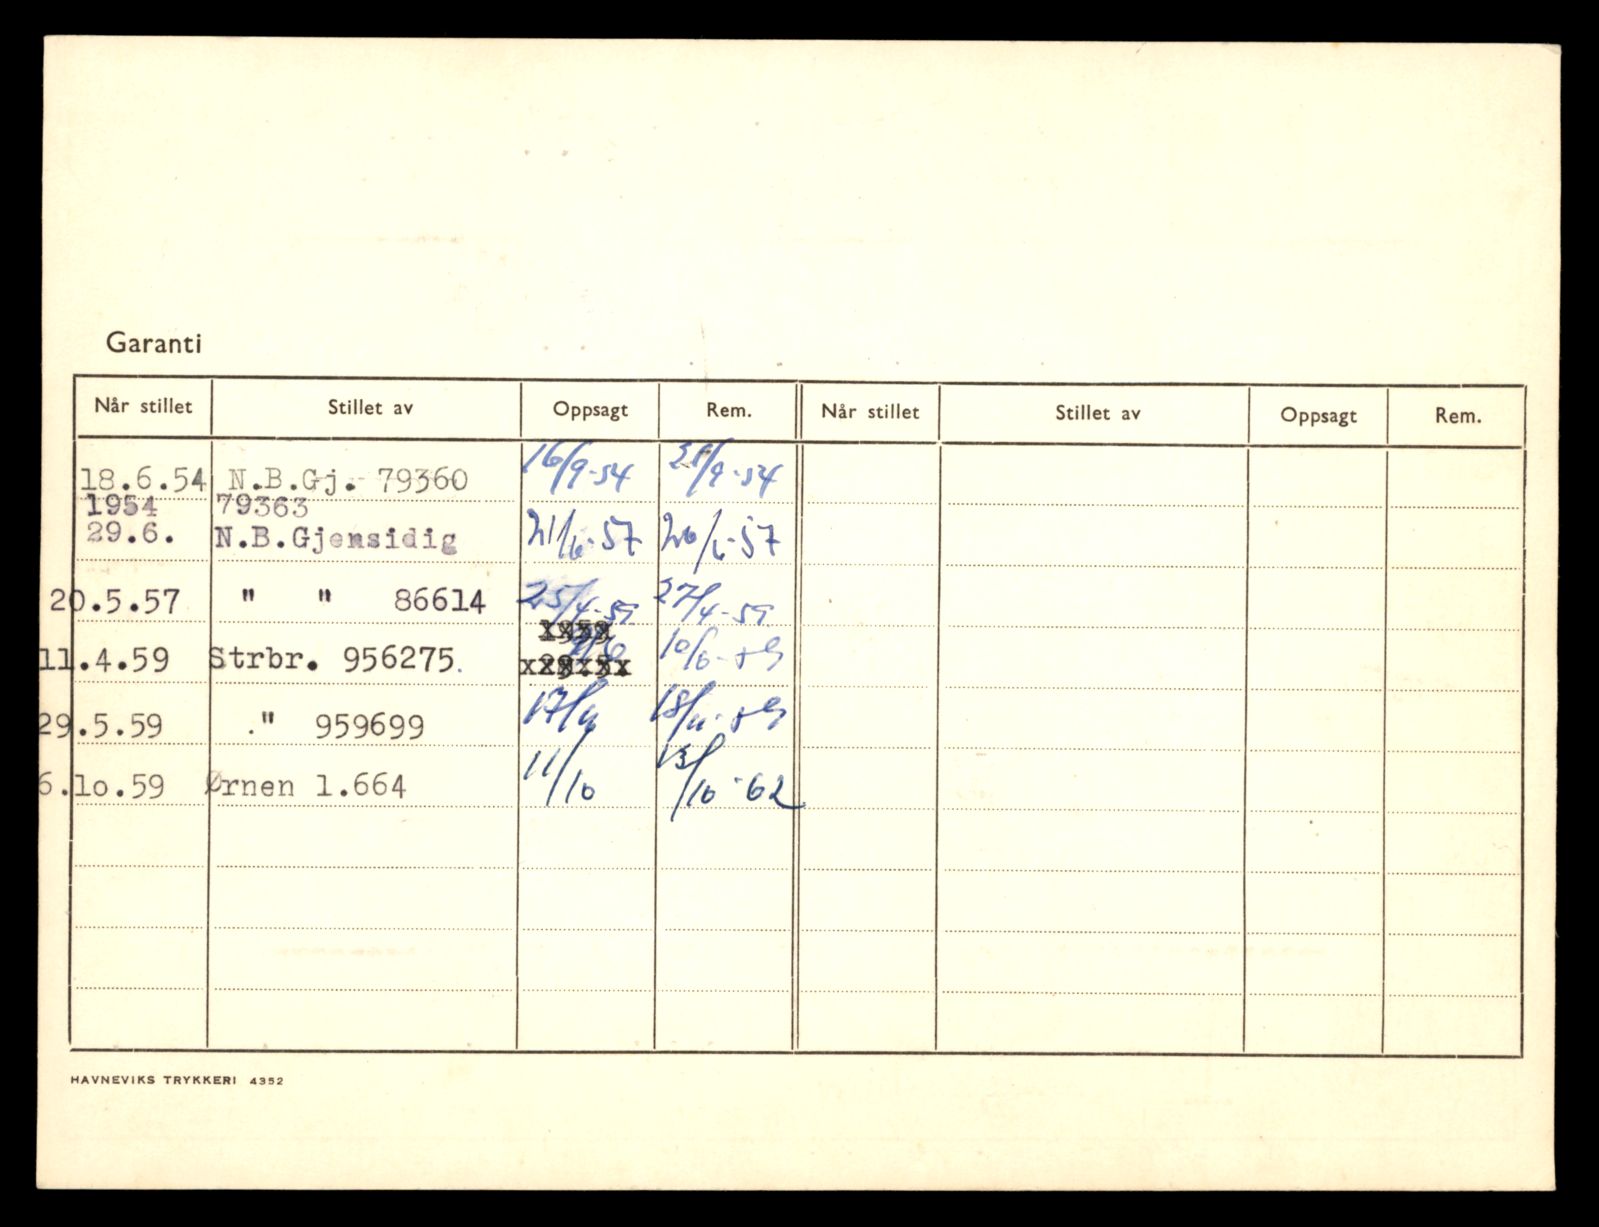 Garanti
Når stillet Stillet av Oppsagt Rem. Når stillet Stillet av Oppsagt Rem.
18.6.54 N.B.Gj. 79360 16/9-54 /9-54
1954 79363
29.6. N.B.Gjensidig 21/6-57 26/6-57
20.5.57 " " 86614 25/4-59 27/4-59
11.4.59 Strbr. 956275. 9/6 10/6-59
29.5.59 ." 959699 17/11 18/11-59
6.10.59 Ørnen 1.664 11/10 13/10-62
HAVNEVIKS TRYKKERI 4352